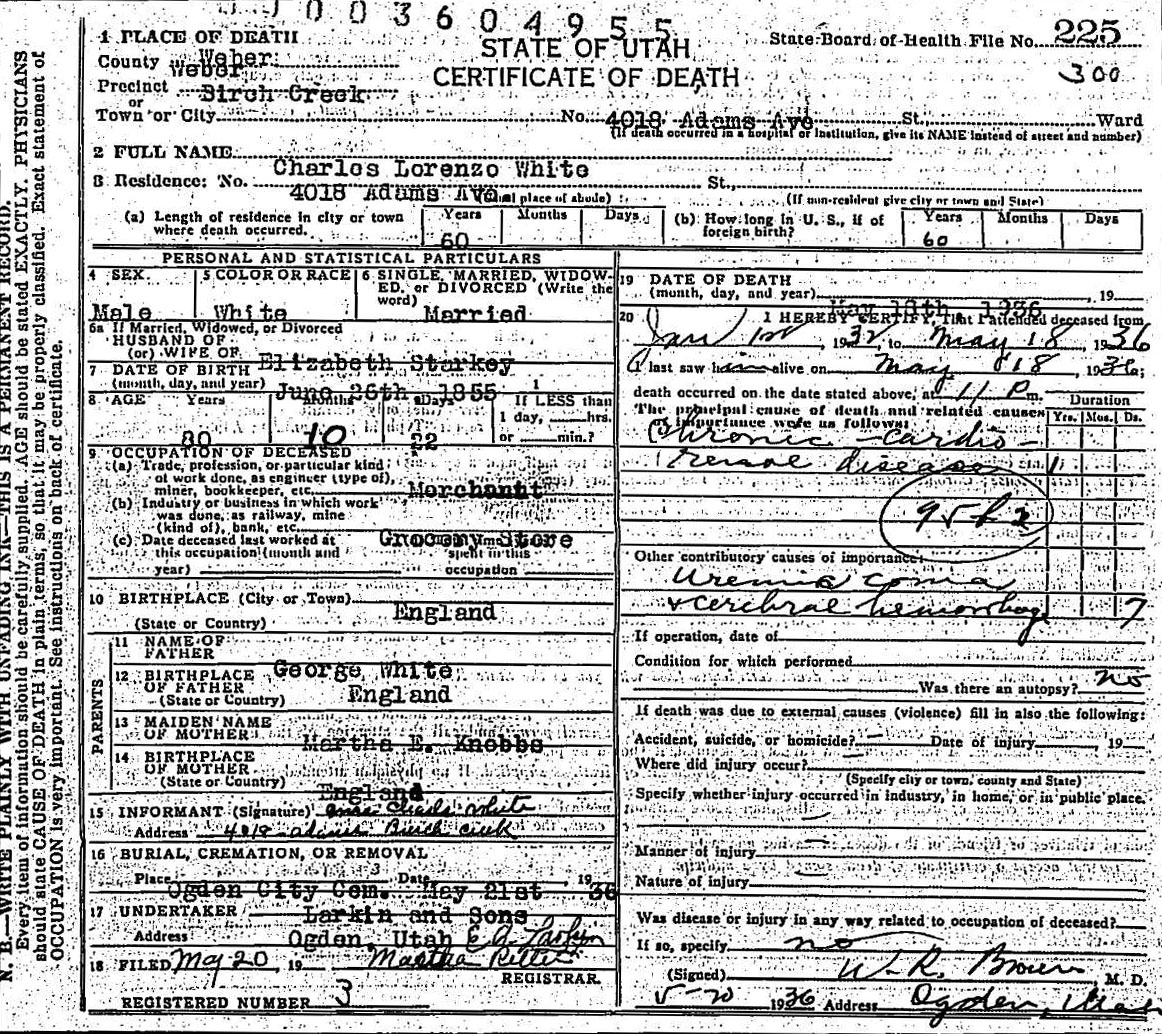 1003604955
STATE OF UTAH
CERTIFICATE OF DEATH
State Board of Health File No. 225
300
1 PLACE OF DEATH
County Weber
Weber
Precinct Birch Creek
or
Town or City No. 4018 Adams Ave St., Ward
(If death occurred in a hospital or institution, give its NAME instead of street and number)
2 FULL NAME Charles Lorenzo White
3 Residence: No. 4018 Adams Ave St.,
(Usual place of abode) (If non-resident give city or town and State)
(a) Length of residence in city or town where death occurred. Years 60 Months Days
(b) How long in U. S., if of foreign birth? Years 60 Months Days
PERSONAL AND STATISTICAL PARTICULARS
4 SEX. Male
5 COLOR OR RACE White
6 SINGLE, MARRIED, WIDOWED, or DIVORCED (Write the word) Married
6a If Married, Widowed, or Divorced
HUSBAND OF
(or) WIFE OF Elizabeth Starkey
7 DATE OF BIRTH
(month, day, and year) June 26th, 1855
8 AGE Years 80 Months 10 Days 22 If LESS than 1 day, hrs. or min.?
9 OCCUPATION OF DECEASED
(a) Trade, profession, or particular kind
of work done, as engineer (type of),
miner, bookkeeper, etc. Merchant
(b) Industry or business in which work
was done, as railway, mine
(kind of), bank, etc. Grocery Store
(c) Date deceased last worked at
this occupation (month and
year) spent in this
occupation
10 BIRTHPLACE (City or Town)
(State or Country) England
PARENTS
11 NAME OF
FATHER George White
12 BIRTHPLACE
OF FATHER
(State or Country) England
13 MAIDEN NAME
OF MOTHER Martha E. Knobbs
14 BIRTHPLACE
OF MOTHER
(State or Country) England
15 INFORMANT (Signature) White
Address Birch Creek
16 BURIAL, CREMATION, OR REMOVAL
Place Ogden City Cem. Date May 21st 19 36
17 UNDERTAKER Larkin and Sons
Address Ogden, Utah
18 FILED May 20, 19 Martha
REGISTRAR.
REGISTERED NUMBER 3
19 DATE OF DEATH
(month, day, and year) May 18th, 1936, 19
20 I HEREBY CERTIFY, That I attended deceased from
Jan 1st, 1932, to May 18, 1936
I last saw him alive on May 18, 1936;
death occurred on the date stated above, at 11 P m.
The principal cause of death and related causes
of importance were as follows:
Duration
Yrs. Mos. Ds.
Chronic cardio-
renal disease 1
95
Other contributory causes of importance:
Uremia coma
& cerebral hemorrhage 7
If operation, date of
Condition for which performed
Was there an autopsy? no
If death was due to external causes (violence) fill in also the following:
Accident, suicide, or homicide? Date of injury 19
Where did injury occur?
(Specify city or town, county and State)
Specify whether injury occurred in industry, in home, or in public place.
Manner of injury
Nature of injury
Was disease or injury in any way related to occupation of deceased?
If so, specify no
(Signed) W. R. Brown M. D.
5-20 1936 Address Ogden, Utah
N. B.—WRITE PLAINLY WITH UNFADING INK—THIS IS A PERMANENT RECORD.
Every item of information should be carefully supplied. AGE should be stated EXACTLY. PHYSICIANS
should state CAUSE OF DEATH in plain terms, so that it may be properly classified. Exact statement of
OCCUPATION is very important. See instructions on back of certificate.